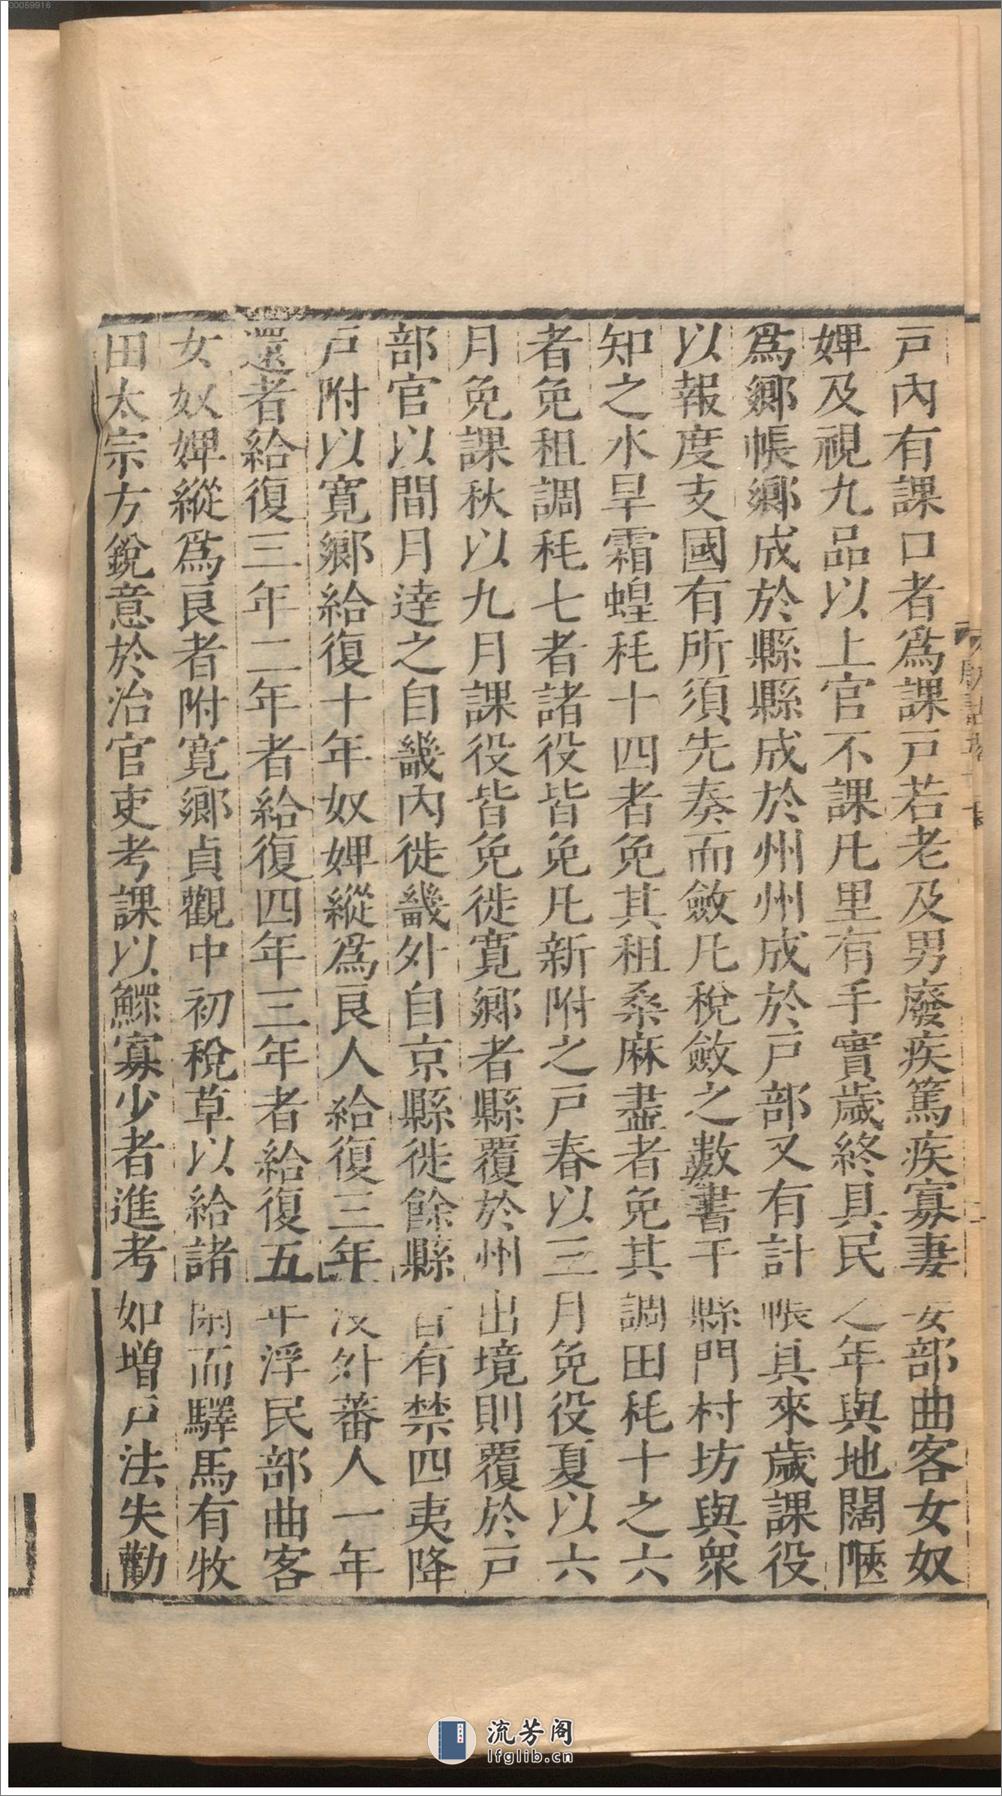 戸內有課口者爲課戸若老及男廢疾篤疾寡妻妾部曲客女奴
婢及視九品以上官不課凡里有手實歲終具民之年與地闊陿
爲鄉帳鄉成於縣縣成於州州成於戸部又有計帳具來歲課役
以報度支國有所須先奏而斂凡稅斂之數書于縣門村坊與衆
知之水旱霜蝗耗十四者免其租桑麻盡者免其調田耗十之六
者免租調耗七者諸役皆免凡新附之戸春以三月免役夏以六
月免課秋以九月課役皆免徙寬鄉者縣覆於州出境則覆於戸
部官以間月達之自畿內徙畿外自京縣徙餘縣皆有禁四夷降
戸附以寬鄉給復十年奴婢縱爲良人給復三年沒外蕃人一年
還者給復三年二年者給復四年三年者給復五年浮民部曲客
女奴婢縱爲良者附寬鄉貞觀中初稅草以給諸閑而驛馬有牧
田太宗方銳意於治官吏考課以鰥寡少者進考如增戸法失勸
00059916
流芳阁
lfglib.cn